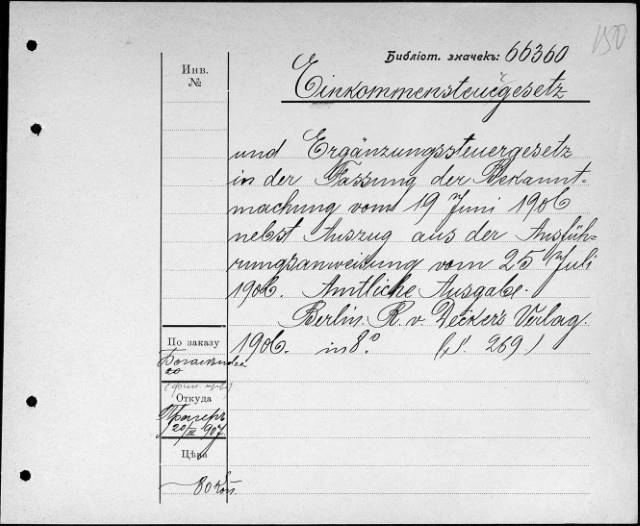 150
Библіот. значекъ: 66360
Инв.
№
Einkommensteuergesetz
und Ergänzungssteuergesetz
in der Fassung der Bekannt-
machung vom 19 Juni 1906
nebst Auszug aus der Ausfüh-
rungsanweisung vom 25 Juli
1906. Amtliche Ausgabe.
Berlin. R. v. Decker's Verlag.
1906. in 8.° (S. 269)
По заказу
Откуда
20/III 907
Цѣна
80